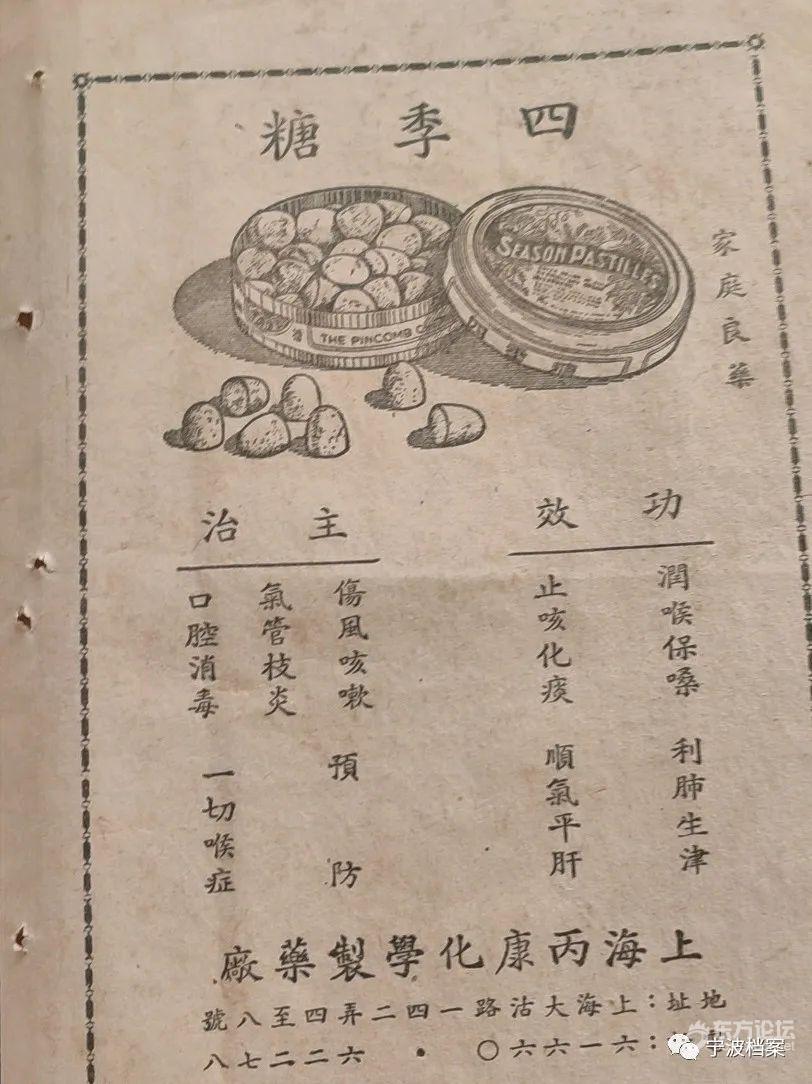 四季糖
家庭良藥
SEASON PASTILLES
THE PINCOMB
功效
潤喉保嗓 利肺生津
止咳化痰 順氣平肝
主治
傷風咳嗽 預防
氣管枝炎
口腔消毒 一切喉症
上海丙康化學製藥廠
地址：上海大沽路一四二弄四至八號
：六一六六〇・六二二七八
东方论坛
宁波档案